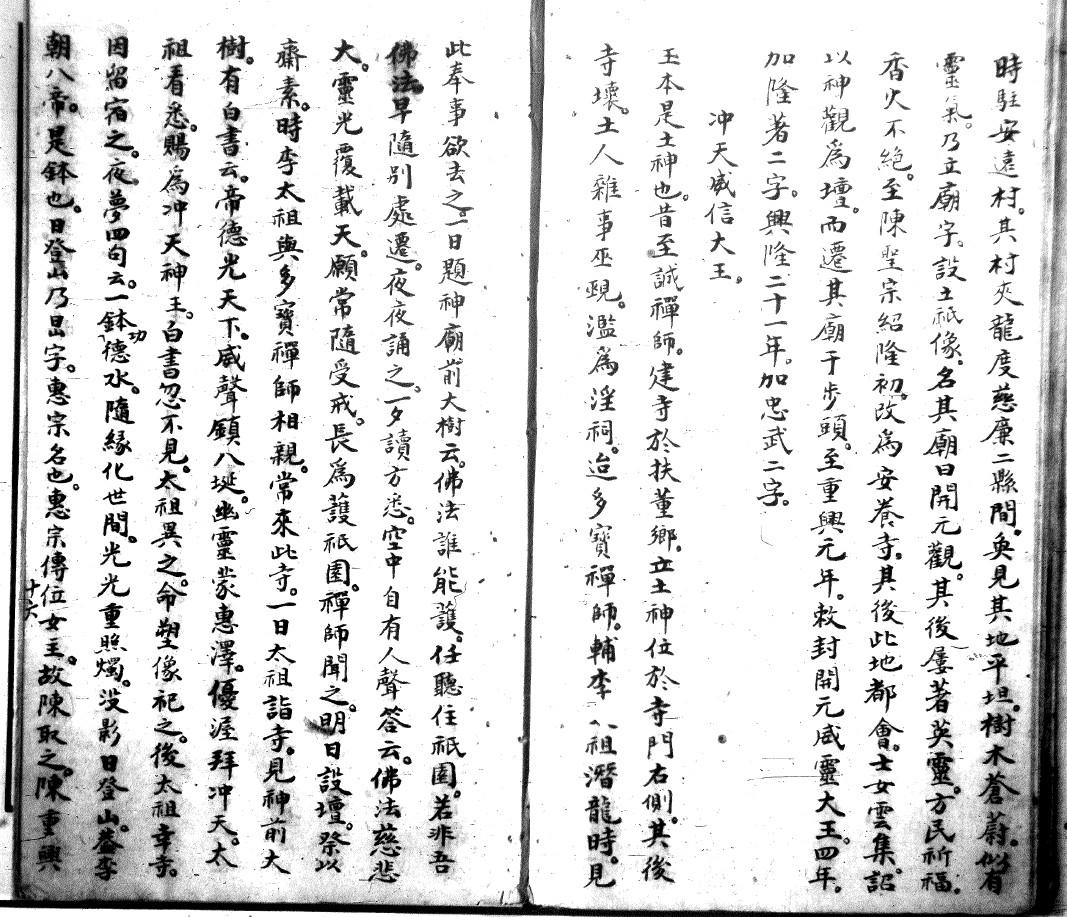 時駐安遠村。其村夾龍度慈廉二縣間。奐見其地平坦。樹木蒼蔚。似有
靈氣。乃立廟宇。設土祇像。名其廟曰開元觀。其後屡著英靈。方民祈福。
香火不絕。至陳聖宗紹隆初。改為安養寺。其後此地都會。士女雲集。詔
以神觀爲壇。而遷其廟于步頭。至重興元年。敕封開元威靈大王。四年。
加隆著二字。興隆二十一年。加忠武二字。
冲天威信大王。
王本是土神也。昔至誠禪師。建寺於扶董鄉。立土神位於寺門右側。其後
寺壞。土人雜事巫覡。濫爲淫祠。迨多寶禪師。輔李祖潛龍時。見
此奉事欲去之。一日題神廟前大樹云。佛法誰能護。任聽住祇園。若非吾
佛法早隨別處遷。夜夜誦之。一夕讀方悉。空中自有人聲答云。佛法慈悲
大。靈光覆載天。願常隨受戒。長爲護祇園。禪師聞之。明日設壇。祭以
齋素。時李太祖與多寶禪師相親。常來此寺。一日太祖詣寺。見神前大
樹。有白書云。帝德光天下。威聲鎮八埏。幽靈蒙惠澤。優渥拜冲天。太
祖看悉。賜爲冲天神王。白書忽不見。太祖異之。命塑像祀之。後太祖幸寺。
因留宿之。夜。夢四句云。一鉢功德水。隨緣化世間。光光重照燭。没影日登山。葢李
朝八帝。是鉢也。日登山乃昷字。惠宗名也。惠宗傳位女主。故陳取之。陳重興
十六